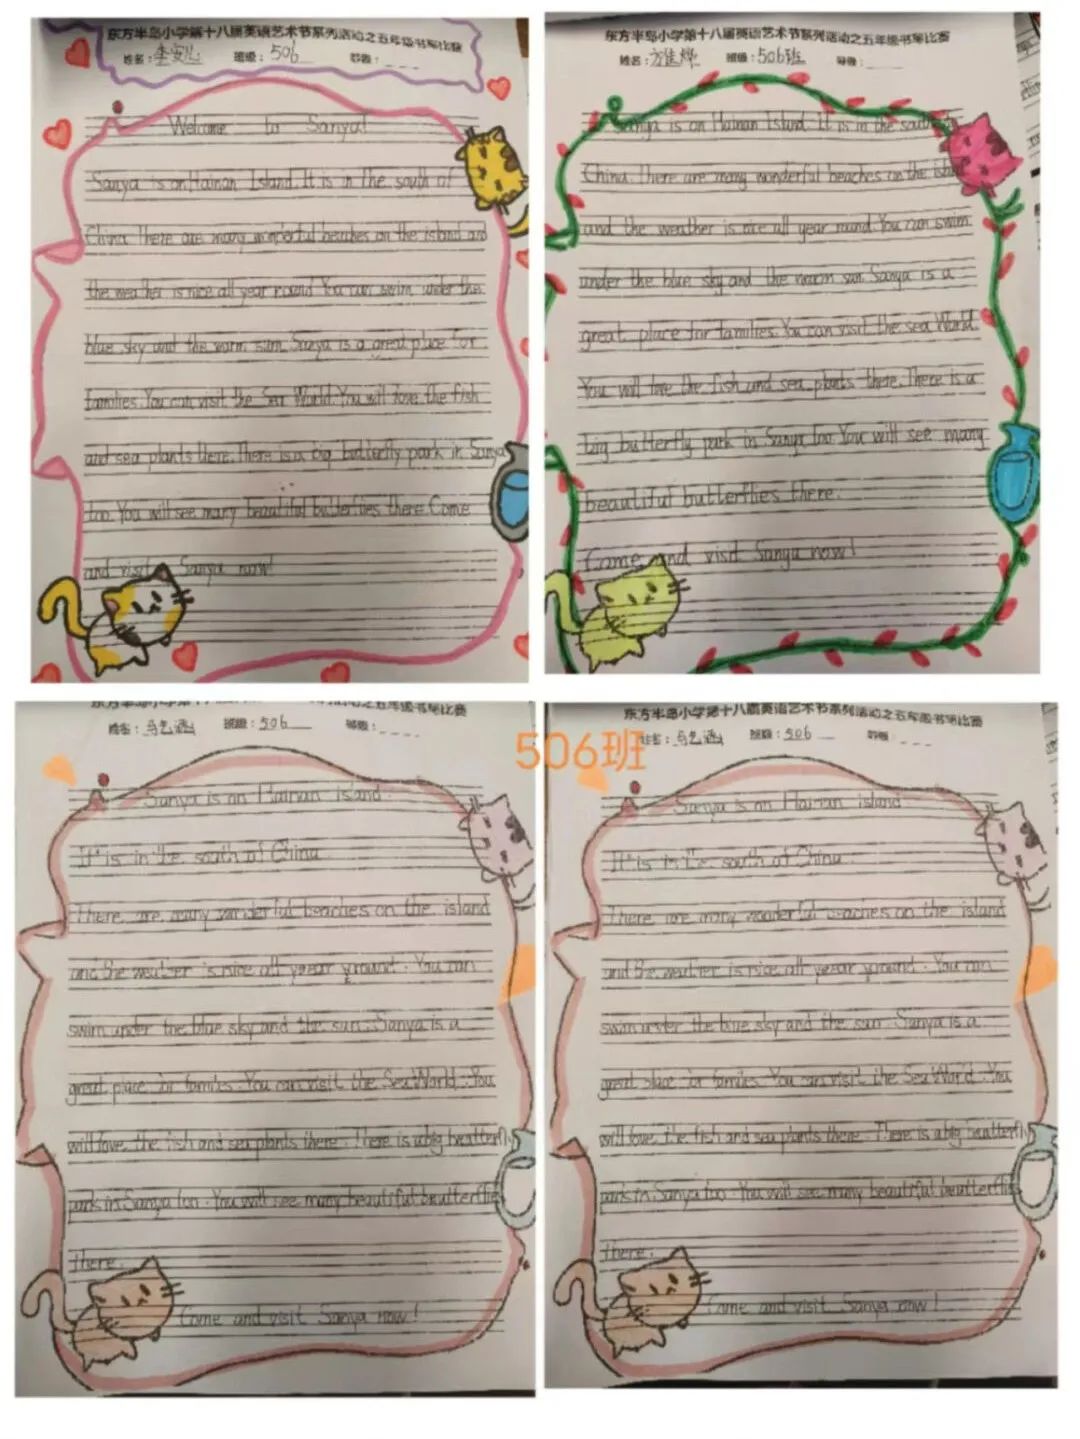 东方半岛小学第十八届英语艺术节系列活动之五年级书写比赛
姓名： 班级：506 导师：
Welcome to Sanya!
Sanya is on Hainan Island. It is in the south of
China. There are many wonderful beaches on the island and
the weather is nice all year round. You can swim under the
blue sky and the warm sun. Sanya is a great place for
families. You can visit the Sea World. You will love the fish
and sea plants there. There is a big butterfly park in Sanya
too. You will see many beautiful butterflies there. Come
and visit Sanya now!
东方半岛小学第十八届英语艺术节系列活动之五年级书写比赛
姓名： 班级：506班 导师：
Sanya is on Hainan Island. It is in the south
China. There are many wonderful beaches on the island
and the weather is nice all year round. You can swim
under the blue sky and the warm sun. Sanya is a
great place for families. You can visit the sea World.
You will love the fish and sea plants there. There is a
big butterfly park in Sanya too. You will see many
beautiful butterflies there.
Come and visit Sanya now!
506班
东方半岛小学第十八届英语艺术节系列活动之五年级书写比赛
姓名： 班级：506 导师：
Sanya is on Hainan island.
It is in the south of China.
There are many wonderful beaches on the island
and the weather is nice all year yround. You can
swim under the blue sky and the sun. Sanya is a
great place for familes. You can visit the Sea World. You
will love the fish and sea plants there. There is a big beutterfly
park in Sanya too. You will see many beautiful beutterflie
there.
Come and visit Sanya now!
东方半岛小学第十八届英语艺术节系列活动之五年级书写比赛
姓名： 班级：506 导师：
Sanya is on Hainan island.
It is in the south of China.
There are many wonderful beaches on the island
and the weather is nice all year yround. You can
swim under the blue sky and the sun. Sanya is a
great place for familes. You can visit the Sea World. You
will love the fish and sea plants there. There is a big beutterfly
park in Sanya too. You will see many beautiful beutterflie
there.
Come and visit Sanya now!